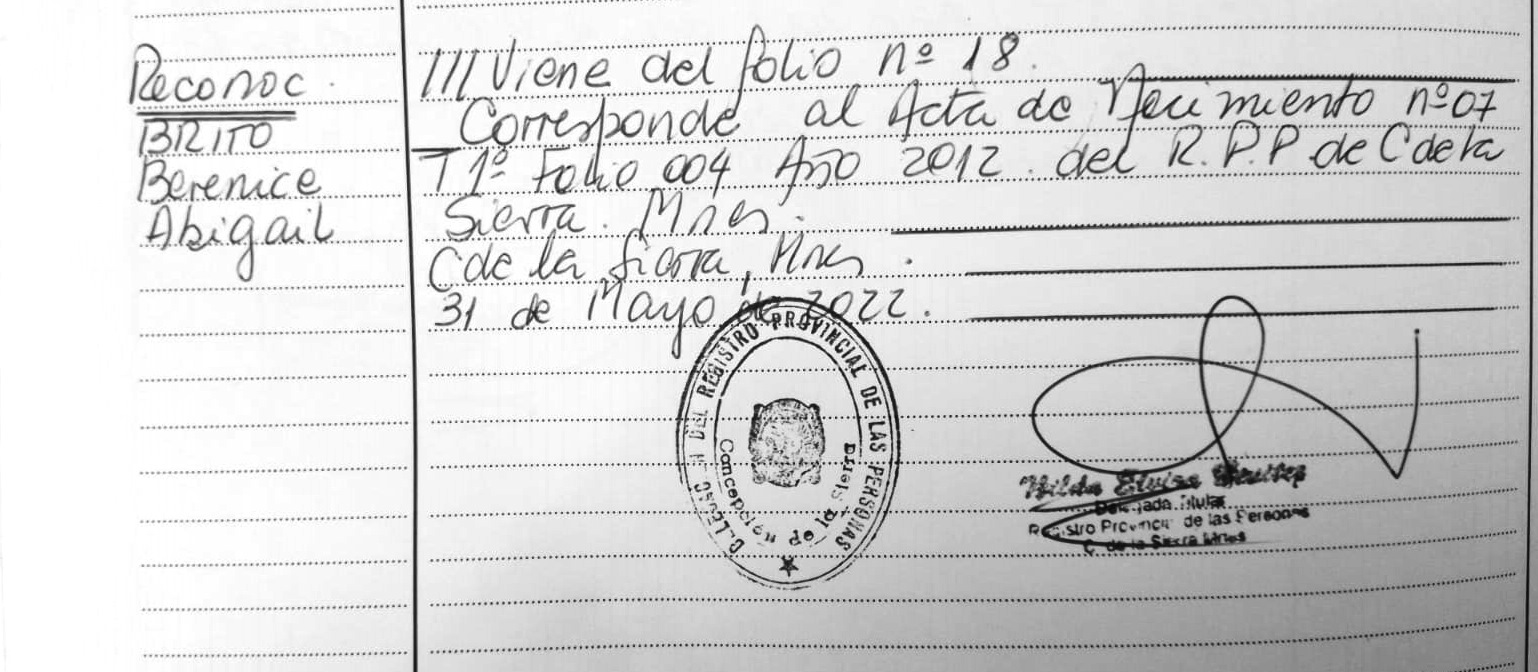 Reconoc.
BRITO
Berenice
Abigail
/// Viene del folio nº 18.
Corresponde al Acta de Nacimiento nº 07
T 1º Folio 004 Año 2012. del R.P.P de C de la
Sierra. Mnes.
C de la Sierra, Mnes.
31 de Mayo de 2022.
DEL REGISTRO PROVINCIAL DE LAS PERSONAS
Concepción de la Sierra
Hilda Benitez
Delegada Titular
Registro Provincial de las Personas
C. de la Sierra Mnes